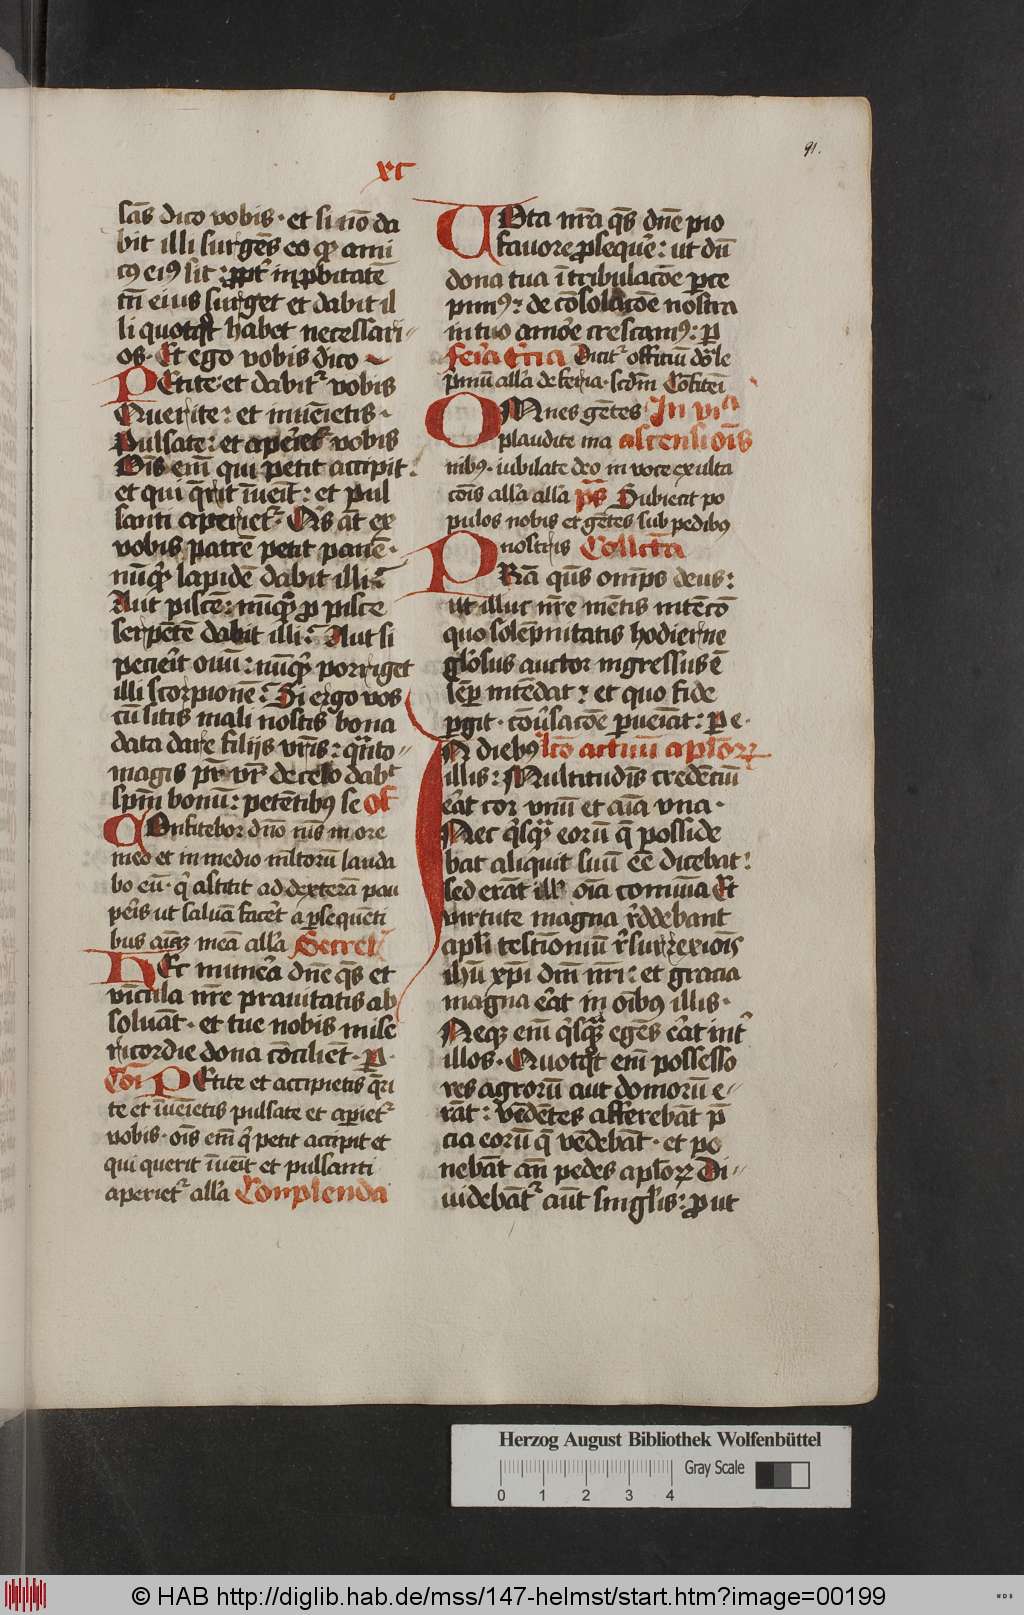 xc
91.
sās dico vobis · et si nō da
bit illi surgēs eo qꝫ ami
cꝰ eiꝰ sit : ꝓpt̄ inꝓbitatē
tn̄ eius surget et dabit il
li quotqt habet necessari
os · Et ego vobis dico
PEtite : et dabit᷑ vobis
Querite : et inueīetis ·
Pulsate : et aperiet᷑ vobis
Oīs em̄ qui petit accipit :
et qui q̄rit īueīt : et pul
santi aperiet᷑ · Qis āt ex
vobis patrē petit panē ·
nūqꝫ lapidē dabit illi
Aut piscē : nūqꝫ ꝓ pisce
serpētē dabit illi : Aut si
pecierit ouū : nūqꝫ porriget
illi scorpionē : Si ergo vos
cū sitis mali nostis bona
data dare filijs vr̄is : q̄nto
magis pr̄ vr̄ de celo dab̄t
sp̄m bonū : petētibꝰ se Of
COnfitebor dn̄o nīs in ore
meo et in medio m̄ltorū lauda
bo eū · q̄ astitit ad dexterā pau
peris ut saluā facēt a ꝑsequēti
bus aīaꝫ meā all̄a Secret
HEc munera dn̄e q̄s et
vīcula nr̄e prauitatis ab
soluāt · et tue nobis mise
ricordie dona cōcilīet · P ·
Cōi PEtite et accipietis q̄ri
te et īueīetis pulsate et aperiet᷑
vobis · oīs em̄ q̄ petit accipit et
qui querit īueīt et pulsanti
aperiet᷑ all̄a Conplenda
VOta nr̄a q̄s dn̄e pio
fauore ꝓsequēr : ut dū
dona tua ī tribulacōe ꝑce
pimꝰ : de cōsolacōe nostra
in tuo amōe crescamꝰ : P
Feria tercia Dicit᷑ officiū
pͥmū all̄a de feria · scdm Cōfitei
OMnes gētes In viᵃ
plaudite ma ascensiōis
nibꝰ · iubilate deo in voce exulta
cōis all̄a all̄a p̄s Subiecit po
pulos nobis et gētes sub pedibꝰ
nostris Collcta
PRā qūs omps deus :
ut illuc nr̄e mētis intēcō
quo solēpnitatis hodierne
gl̄osus auctor ingressus ē
sēꝑ intēdat : et quo fide
ꝑgit · cōūsacōe ꝑueīat : P e ·
IN diebꝰ lc̄o actuū aplōꝝ
illis : Multitudīs credēciū
erat cor vnū et aīa vna ·
Nec q̄sqꝫ eorū q̄ posside
bat aliquit suū eē dicebat :
sed erāt ill oīa comūia Et
virtute magna rͥddebant
apl̄i testīoniū rͥsurrexiōīs
ihū xp̄i dn̄i nr̄i : et gracia
magna erat in oībꝰ illis ·
Neqꝫ em̄ q̄sqꝫ egēs erat int̄
illos · Quotqt em̄ possesso
res agrorū aut domorū e
rāt : vēdētes afferebāt p̄
cia eorū q̄ vēdebāt · et po
nebāt an̄ pedes aplōꝝ Di
uidebāt᷑ aūt singl̄is : ꝓut
Herzog August Bibliothek Wolfenbüttel
Gray Scale
0 1 2 3 4
© HAB http://diglib.hab.de/mss/147-helmst/start.htm?image=00199